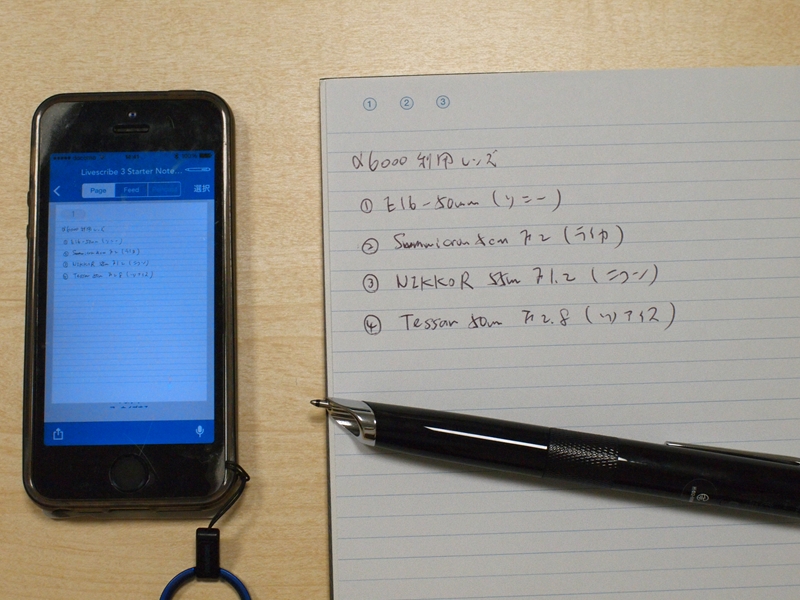 Livescribe 3 Starter Note...
Page Feed 選択
① ② ③
α6000 利用レンズ
① E16-50mm (ソニー)
② Summicron 5cm F2 (ライカ)
③ NIKKOR 55mm F1.2 (ニコン)
④ Tessar 50mm F2.8 (ツァイス)